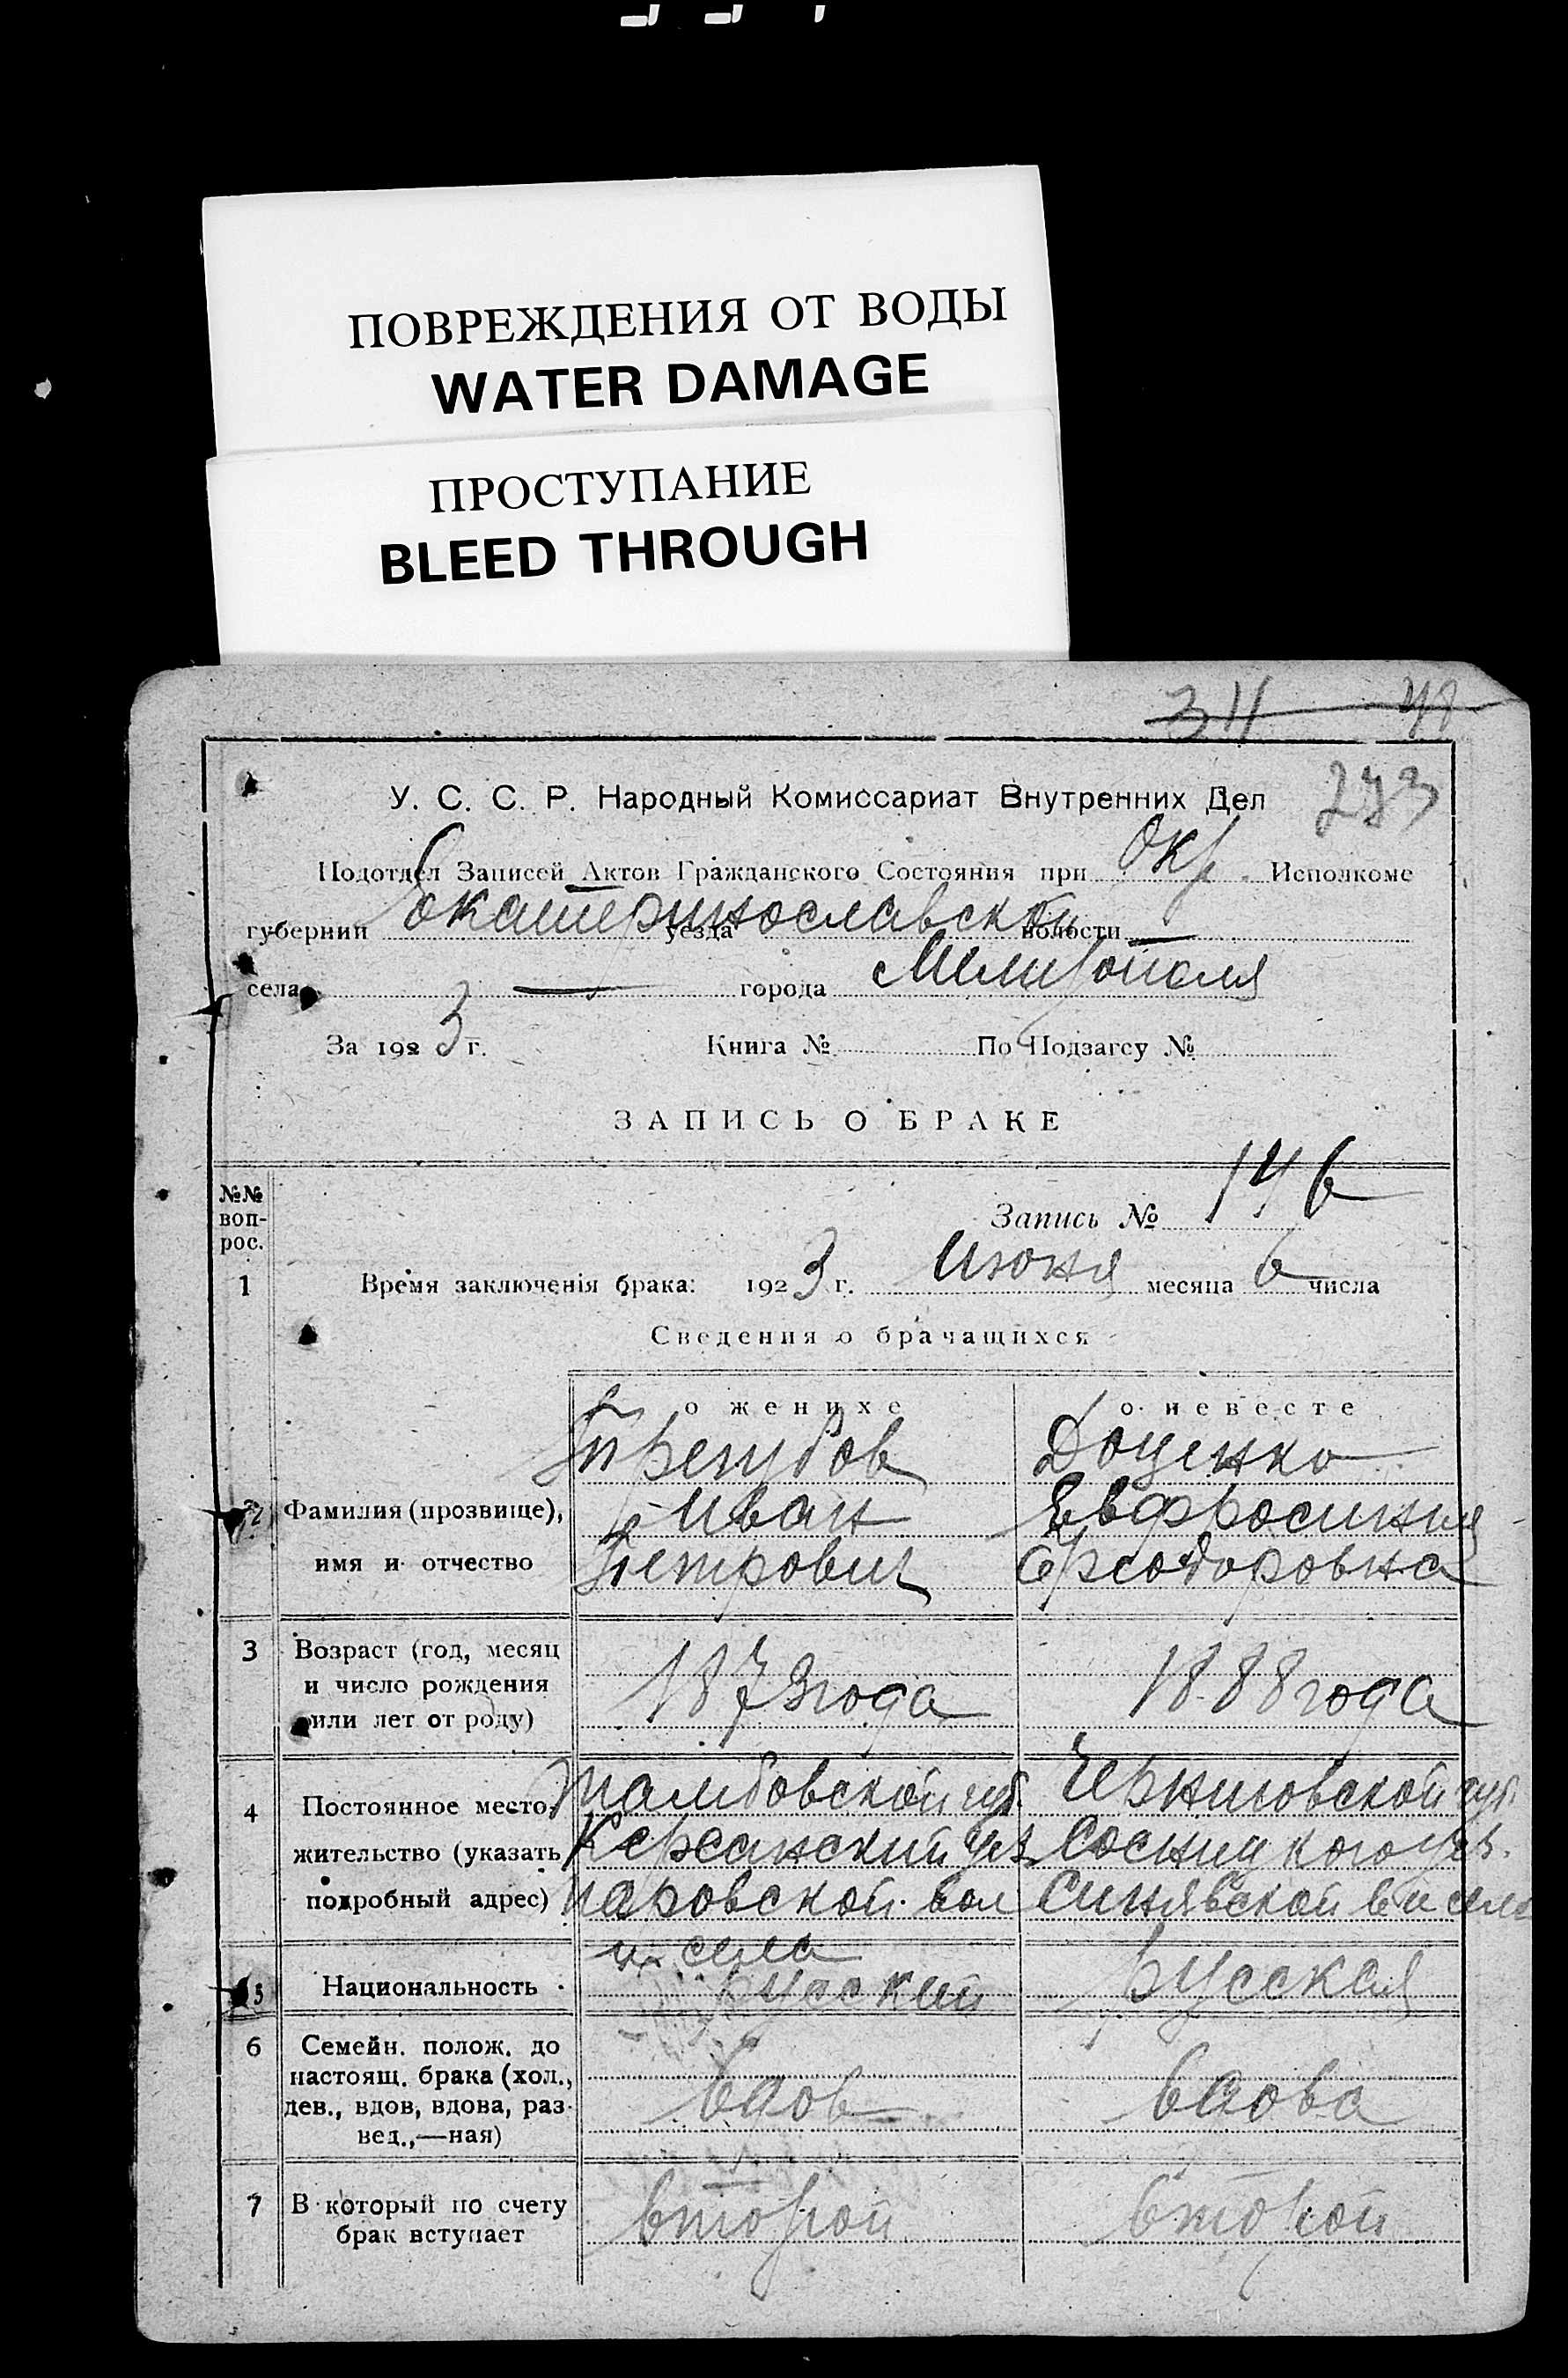 ПОВРЕЖДЕНИЯ ОТ ВОДЫ
WATER DAMAGE
ПРОСТУПАНИЕ
BLEED THROUGH
311 48
273
У. С. С. Р. Народный Комиссариат Внутренних Дел
Подотдел Записей Актов Гражданского Состояния при Окр. Исполкоме
губернии Екатеринославской уезда волости —
села — города Мелитополя
За 1923 г. Книга № По Подзагсу №
ЗАПИСЬ О БРАКЕ
№№ воп-
рос.
Запись № 146
1 Время заключенія брака: 1923 г. июня месяца 6 числа
Сведения о брачащихся
о женихе о невесте
Трегубов Доценко
2 Фамилия (прозвище), Иван Евфросиния
имя и отчество Петрович Феодоровна
3 Возраст (год, месяц
и число рождения 1873 года 1888 года
или лет от роду)
4 Постоянное место- Тамбовской губ. Черниговской губ.
жительство (указать Керсанский уез Сосницкого уез.
подробный адрес) вол Синявской в и села
и села
5 Национальность русский русская
6 Семейн. полож. до
настоящ. брака (хол.,
дев., вдов, вдова, раз- вдов вдова
вед.,—ная)
7 В который по счету второй второй
брак вступает